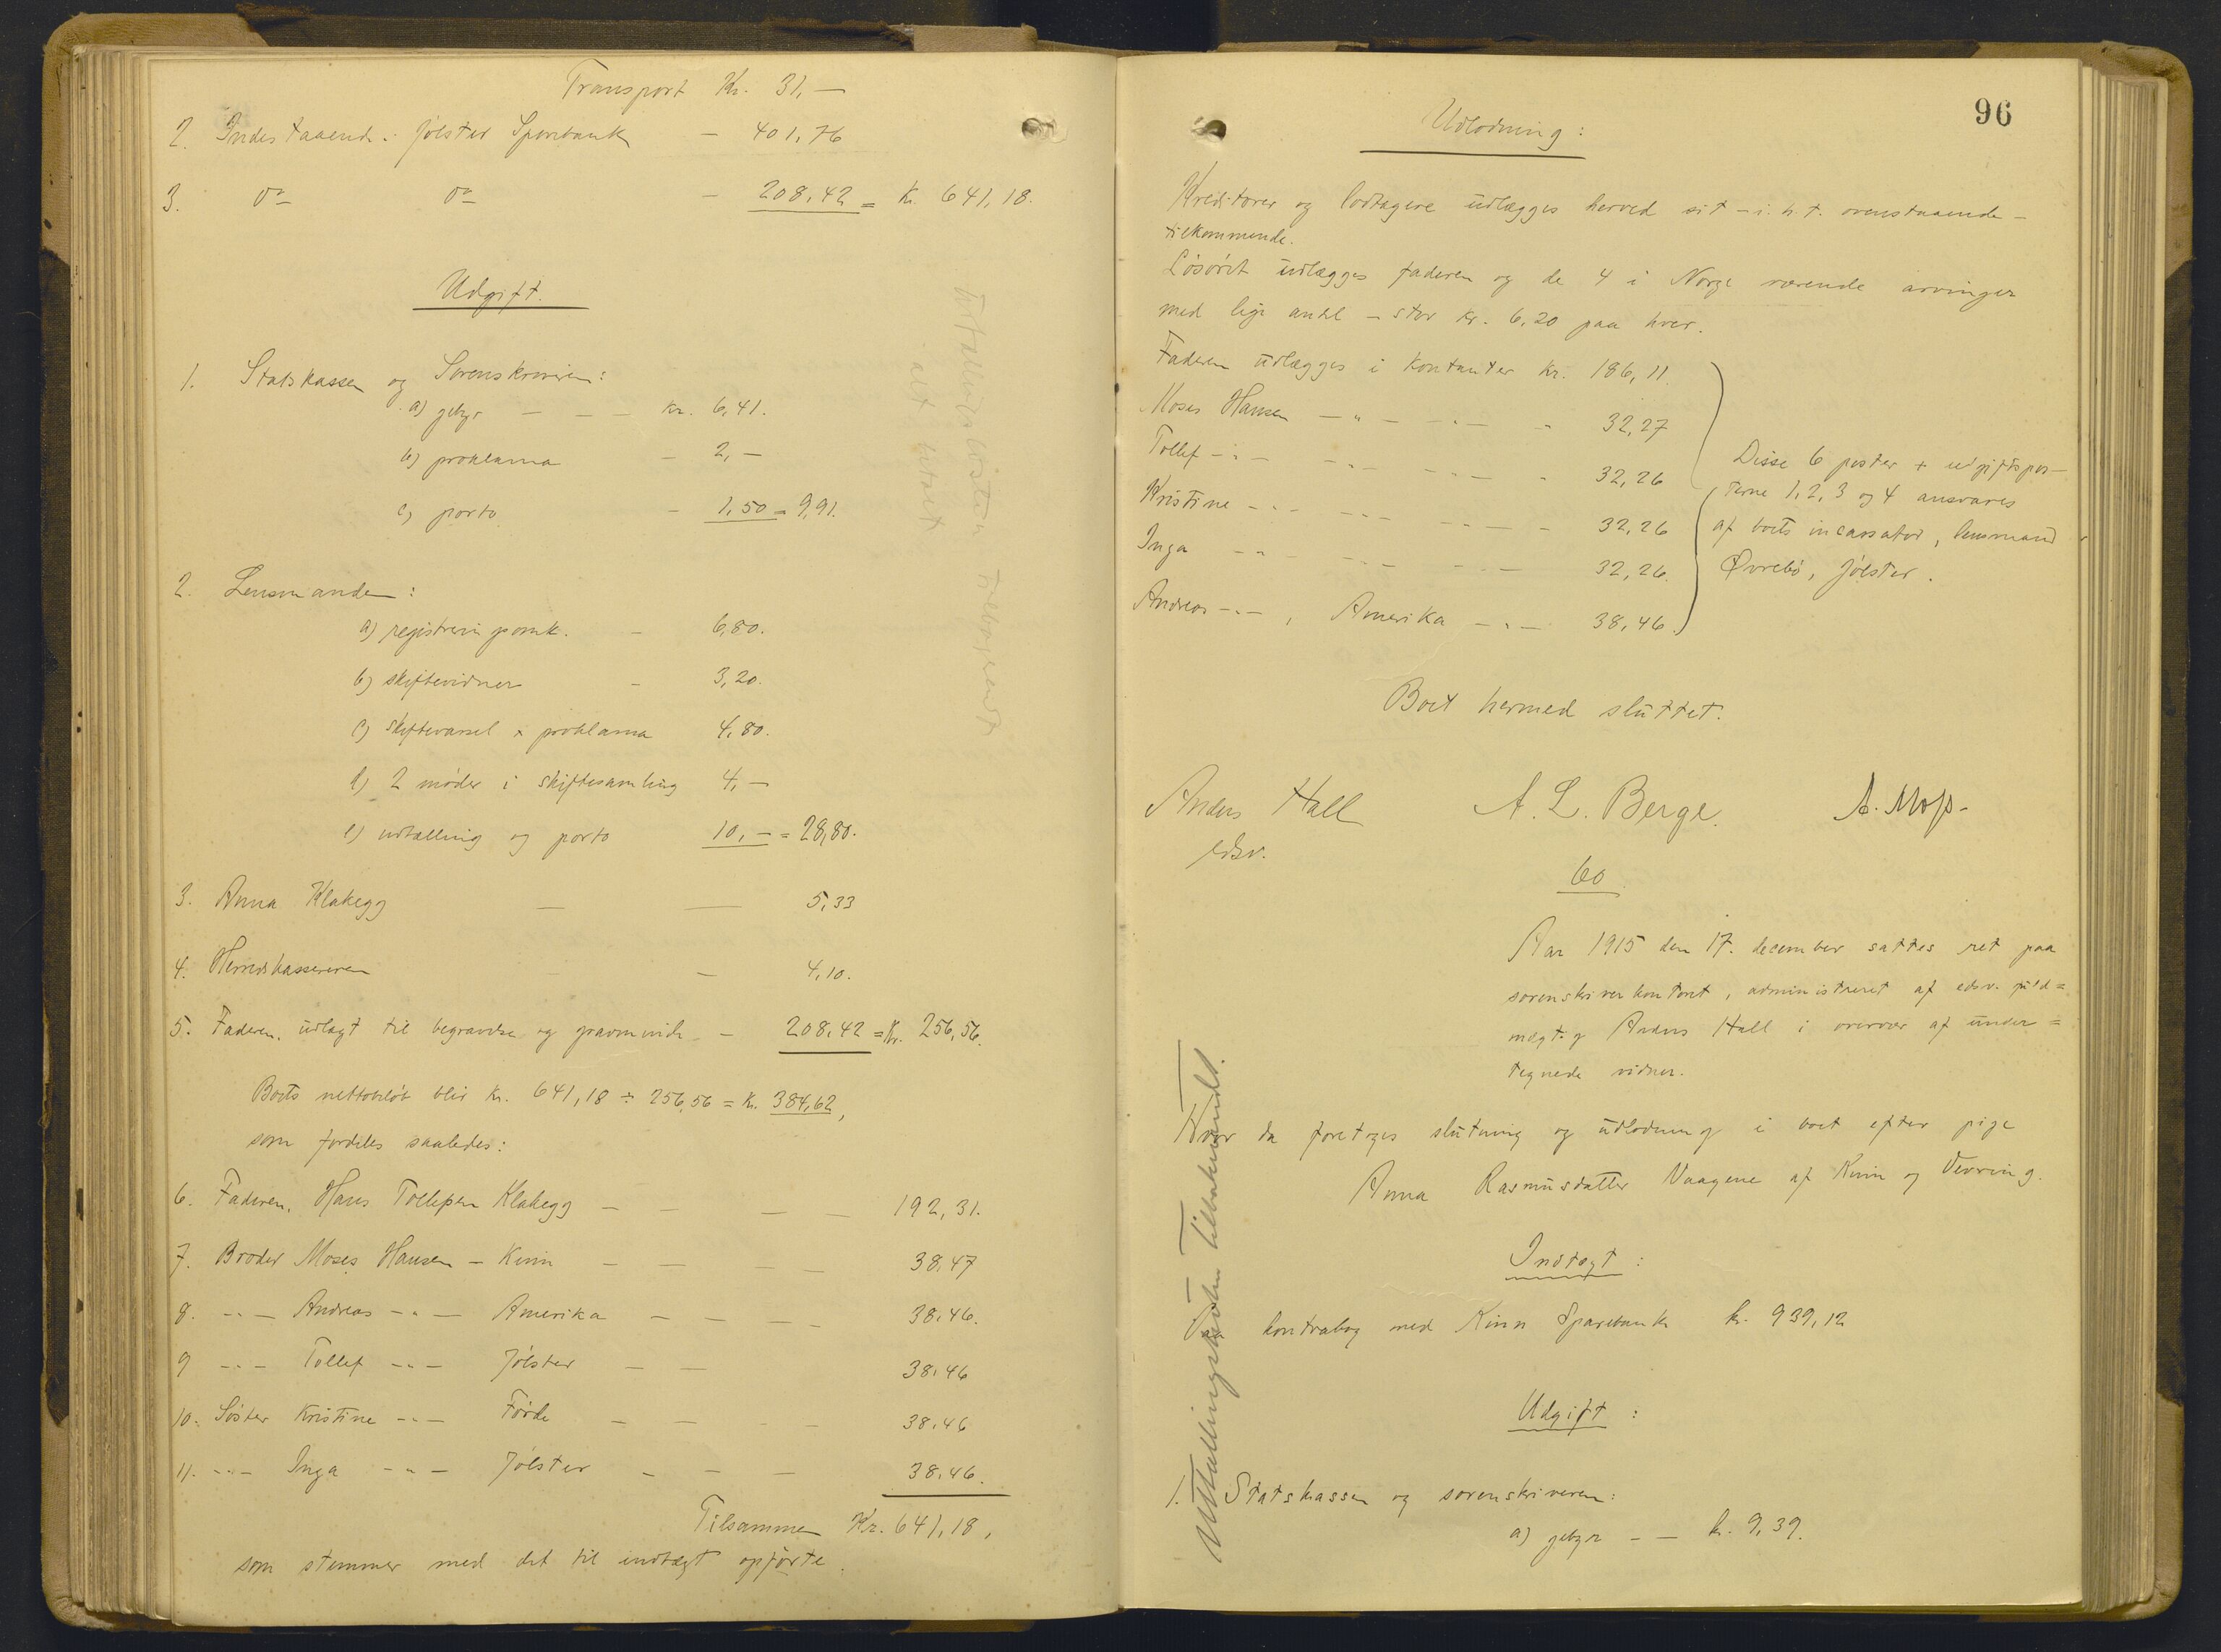 Transport Kr. 31,—
2. Indestaaende i Jølster Sparebank — 401,76
3. do do — 208,42 = Kr. 641,18.
Udgift.
1. Statskassen og Sorenskriveren:
a) gebyr — — — kr. 6,41.
b) proklama - 2,—
c) porto - 1,50 = 9,91.
2. Lensmanden:
a) registreringsomk. - 6,80.
b) skiftevidner - 3,20.
c) skiftevarsel x proklama 4,80.
d) 2 møder i skiftesamling 4,—
e) udtælling og porto 10,— = 28,80.
3. Anna Klakegg — — 5,33
4. Herredskassereren — 4,10.
5. Faderen, udlagt til begravelse og gravminde — 208,42 = Kr. 256,56.
Boets nettobeløb blir Kr. 641,18 ÷ 256,56 = Kr. 384,62,
som fordeles saaledes:
6. Faderen, Hans Tollefsen Klakegg — — — — 192,31.
7. Broder Moses Hansen — Kinn — — — — 38,47
8. -"- Andreas -"- Amerika — — — — 38,46.
9 -"- Tollef -"- Jølster — — 38,46
10. Søster Kristine -"- Førde — — — — 38,46
11. -"- Inga -"- Jølster — — — 38,46.
Tilsammen Kr. 641,18,
som stemmer med det til indtægt opførte.
96
Udlodning:
Kreditorer og lodtagere udlægges herved sit — i. h. t. ovenstaaende —
tilkommende.
Løsøret udlægges faderen og de 4 i Norge værende arvinger
med lige andel — stor kr. 6,20 paa hver.
Faderen udlægges i kontanter kr. 186,11.
Moses Hansen — " — -"- " 32,27
Tollef -"- -"- -"- " 32,26
Kristine -"- -"- -"- - 32,26
Inga -"- -"- -"- 32,26.
Andreas -"-, Amerika -"- 38,46.
Disse 6 poster + udgiftspos-
terne 1, 2, 3 og 4 ansvares
af boets incassator, lensmand
Øvrebø, Jølster.
Boet hermed sluttet.
Anders Hall A. L. Berge. A. Moss-
edsv.
60
Aar 1915 den 17. december sattes ret paa
sorenskriverkontoret, administreret af edsv. fuld=
mægtig Anders Hall i overvær af under=
tegnede vidner.
Hvor da foretoges slutning og udlodning i boet efter pige
Anna Rasmusdatter Vaagene af Kinn og Vevring.
Indtægt:
kontrabog med Kinn Sparebank kr. 939,12
Udgift:
1. Statskassen og sorenskriveren:
a) gebyr — — kr. 9,39.
Uttællingslisten tilbakesendt.